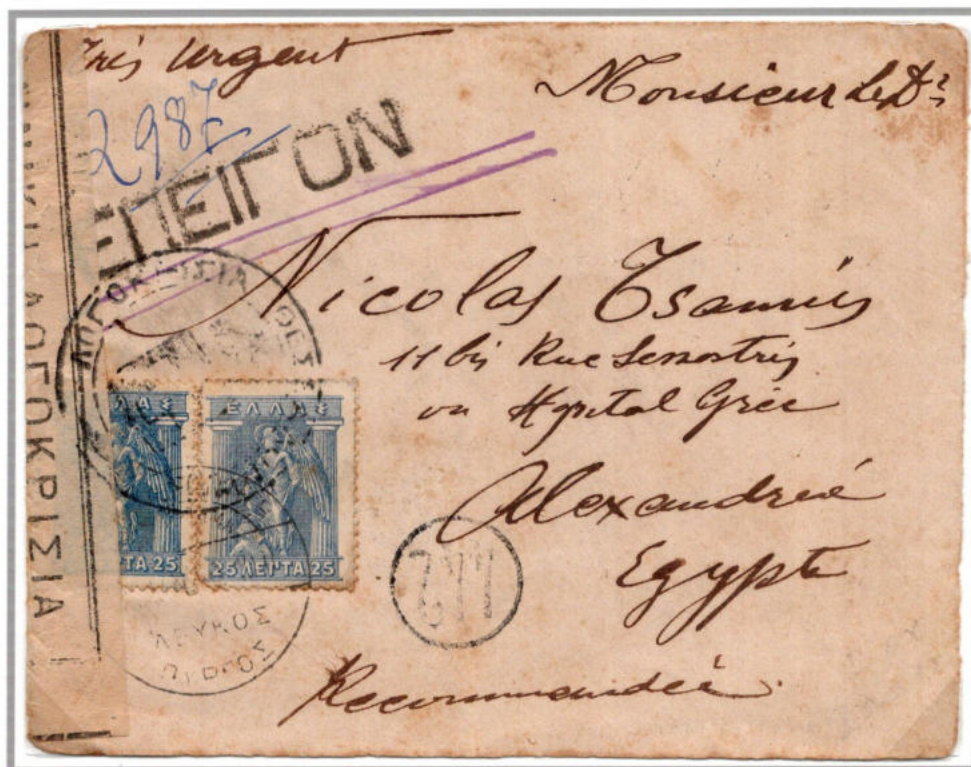 Très Urgent
Monsieur Le Dr
2987
ΕΠΕΙΓΟΝ
Nicolas Tsamis
11 bis Rue Sesostris
ou Hopital Grec
Alexandrie
Egypte
Recommandée
ΛΟΓΟΚΡΙΣΙΑ
ΛΟΓΟΚΡΙΣΙΑ ΘΕΣ
ΛΑΣ
ΠΤΑ 25
ΕΛΛΑΣ
25 ΛΕΠΤΑ 25
ΛΕΥΚΟΣ
ΠΥΡΓΟΣ